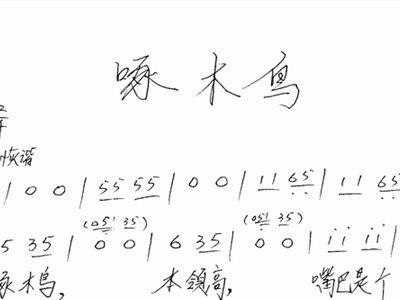 啄木鸟
诙谐
| 0 0 | 55 55 | 0 0 | 11 65 | 11 65
(051 35) (051 35)
5 35 | 0 0 | 6 35 | 0 0 | ii ii |
啄木鸟, 本领高, 嘴巴是个